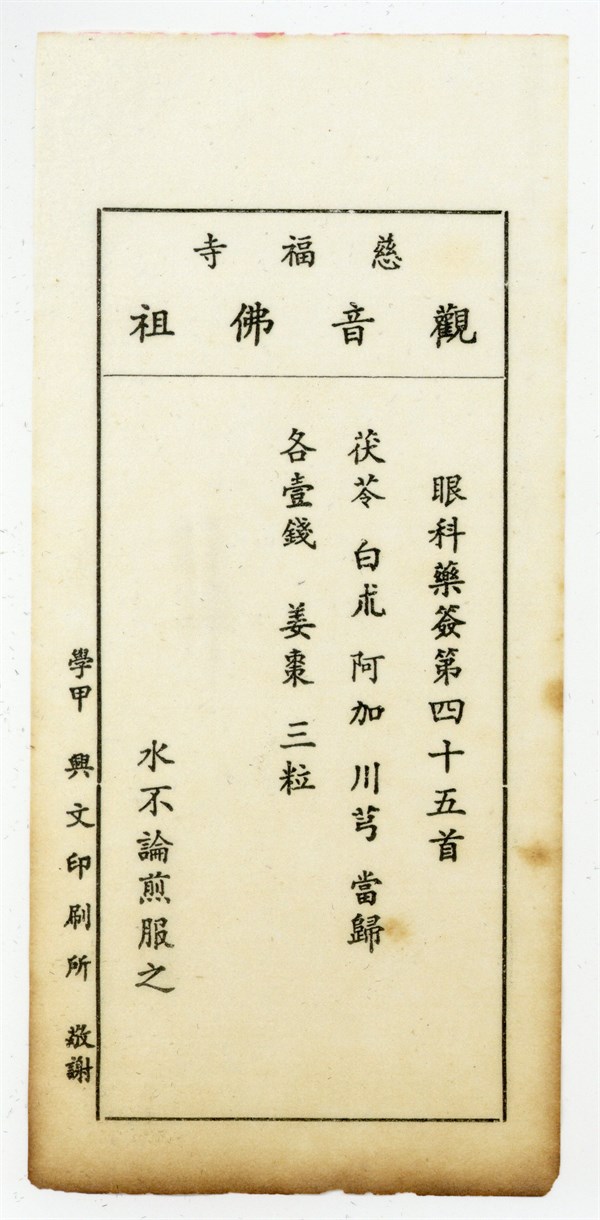 慈福寺
觀音佛祖
眼科藥簽第四十五首
茯苓 白朮 阿加 川芎 當歸
各壹錢 姜棗 三粒
水不論煎服之
學甲 興文印刷所 敬謝